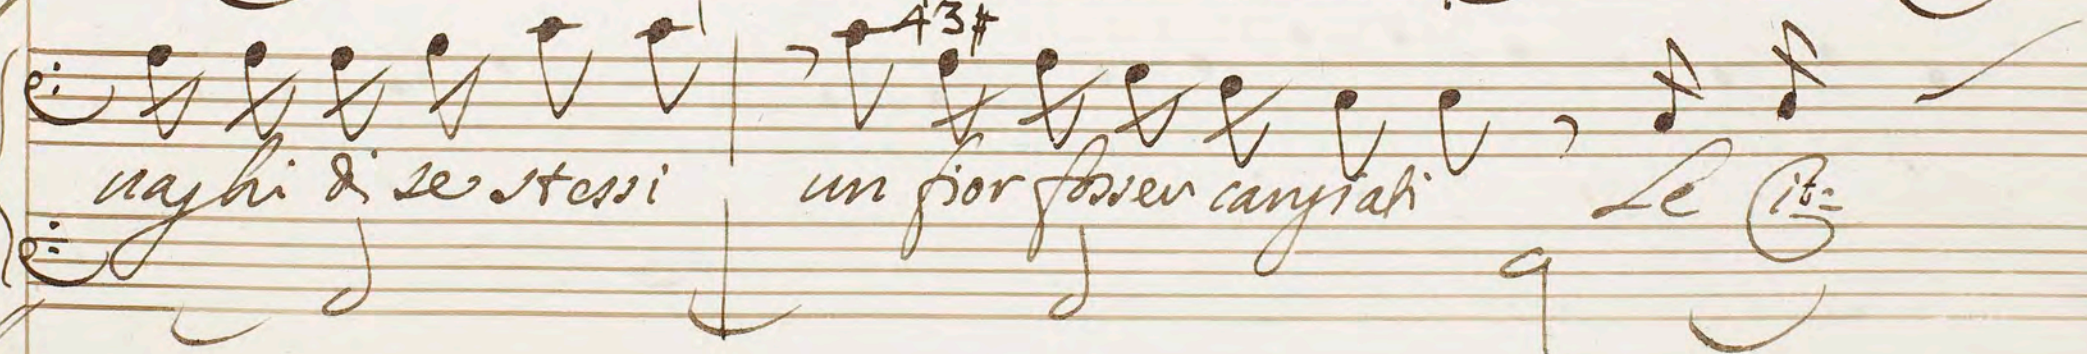 43#
uaghi di se stessi un fior fosser cangiati Le Cit=